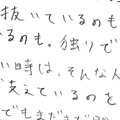 抜いているのも
いるのも。独りで
い時は、そんな人
支えているのを
でもまだまだ